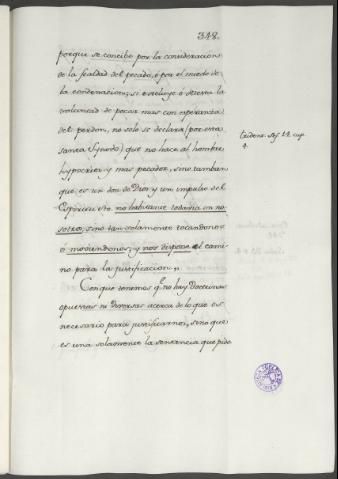 348.
porque se concibe por la consideracion
de la fealdad del pecado, ó por el miedo de
la condenacion; si excluye ó desecha la
voluntad de pecar mas con esperanza
del perdon, no solo se declara (por esta
santa Synodo) que no hace al hombre
hypocrita y mas pecador, sino tambien
que es un don de Dios y un impulso del
Espiritu Sto. no habitante todavia en no-
sotros, sino tan solamente tocandonos
ó moviendonos, y nos dispone el cami
no para la justificacion „
Con que tenemos q.e no hay Doctrinas
opuestas ni diversas acerca de lo que es
necesario para justificarnos, sino que
es una solamente la sentencia que pide
tridens. sess. 14. cap
4.